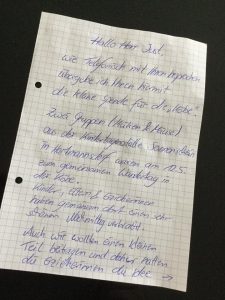 Hallo Herr Just,
wie Telefonisch mit Ihnen besprochen
übergebe ich Ihnen hiermit
die kleine Spende für die "Liebe".
Zwei Gruppen (Mäuse)
aus der Kindertagesstätte
in Hartmannsdorf waren am 12.5.
zum gemeinsamen Wandertag in
Kinder, Eltern & Erzieherinnen
haben gemeinsam dort einen sehr
schönen Nachmittag verbracht.
Auch wir wollten einen kleinen
Teil beitragen und daher hatten
die Erzieherinnen die Idee →